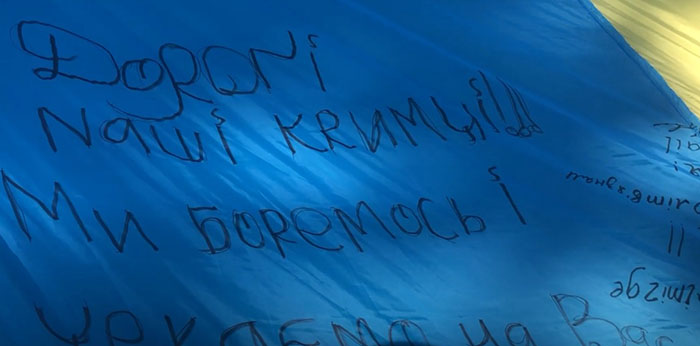 Дорогі
Наші кримці!!!
Ми боремось і
чекаємо на Вас